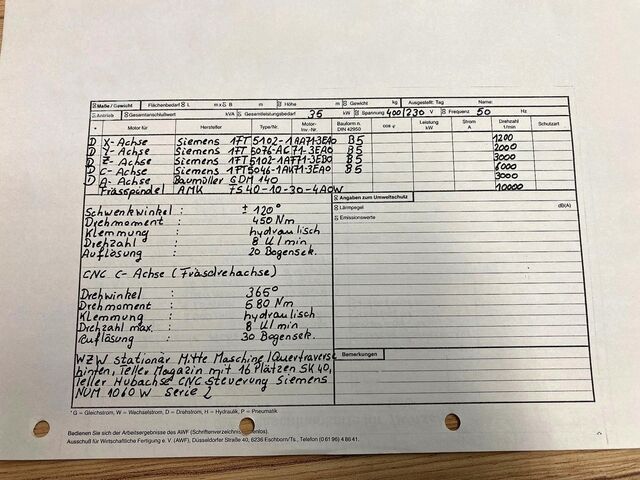 Maße / Gewicht Flächenbedarf L m x B m Höhe m Gewicht kg Ausgestellt: Tag Name:
Antrieb Gesamtanschlußwert kVA Gesamtleistungsbedarf 35 kW Spannung 400/230 V Frequenz 50 Hz
* Motor für Hersteller Type/Nr. Motor-Inv.-Nr. Bauform n. DIN 42950 cos φ Leistung kW Strom A Drehzahl 1/min Schutzart
D X-Achse Siemens 1FT5102-1AA71-3EA0 B5 1200
D Y-Achse Siemens 1FT5076-AC71-3EA0 B5 2000
D Z-Achse Siemens 1FT5102-1AF71-3EB0 B5 3000
D C-Achse Siemens 1FT5046-1AK71-3EA0 B5 6000
D A-Achse Baumüller GDM 140 3000
Frässpindel AMK FS40-10-30-4AOW 10000
Angaben zum Umweltschutz
Lärmpegel dB(A)
Emissionswerte
Schwenkwinkel : ± 120°
Drehmoment : 450 Nm
Klemmung : hydraulisch
Drehzahl : 8 U/min
Auflösung : 20 Bogensek.
CNC C-Achse (Fräsdrehachse)
Drehwinkel : 365°
Drehmoment : 580 Nm
Klemmung : hydraulisch
Drehzahl max. : 8 U/min
Auflösung : 30 Bogensek.
WZW stationär Mitte Maschine/Quertraverse
hinten, Teller Magazin mit 16 Plätzen SK40,
Teller Hubachse CNC Steuerung Siemens
NUM 1060 W Serie 2
Bemerkungen
* G – Gleichstrom, W – Wechselstrom, D – Drehstrom, H – Hydraulik, P – Pneumatik
Bedienen Sie sich der Arbeitsergebnisse des AWF (Schriftenverzeichnis kostenlos).
Ausschuß für Wirtschaftliche Fertigung e. V. (AWF), Düsseldorfer Straße 40, 6236 Eschborn/Ts., Telefon (0 61 96) 4 86 41.